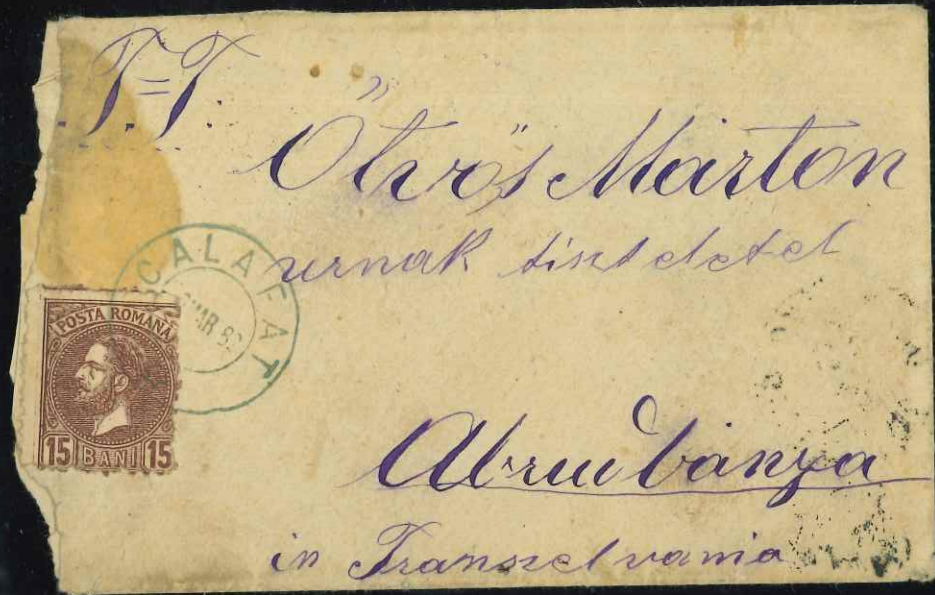 T=T.
Ötvös Márton
urnak tiszteletel
CALAFAT
MAR 8
POSTA ROMANA
15 BANI 15
Abrudbánya
in Transzelvania